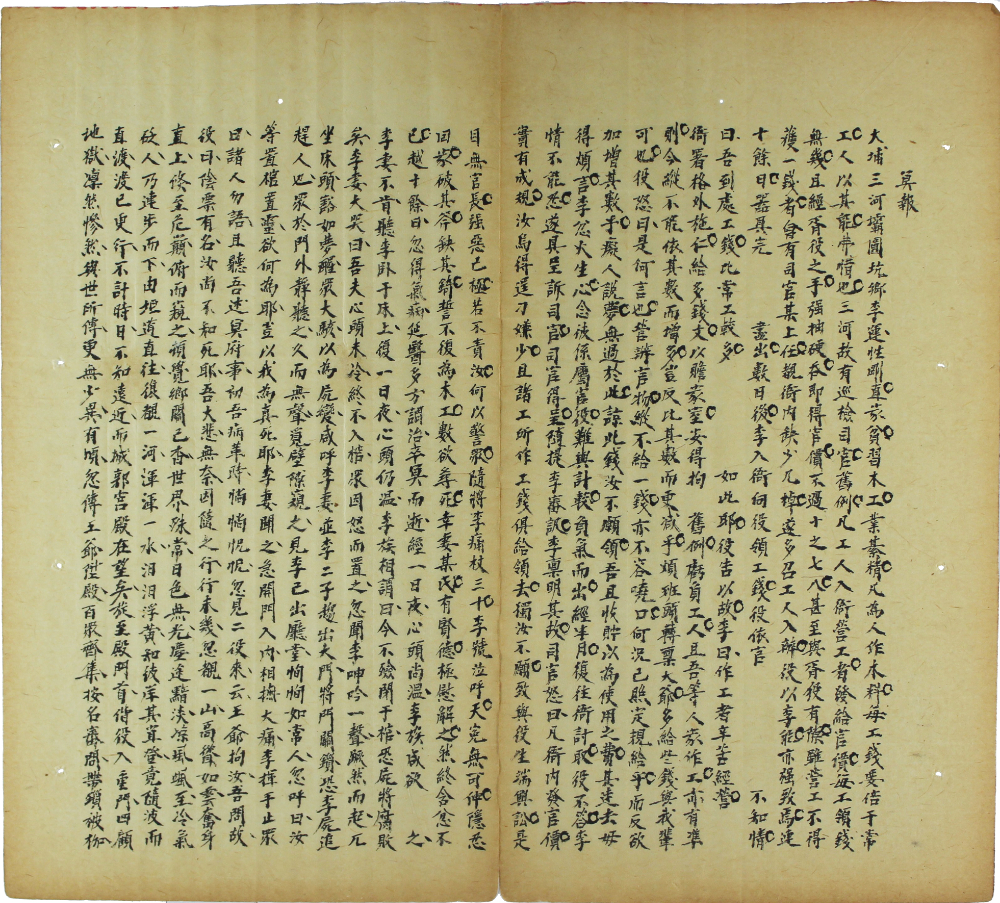 冥報
大埔三河壩圖坑鄉李運性剛直家貧習木工業綦精凡為人作木料每工錢要倍于常
工人以其能亦惜也三河故有巡檢司官舊例凡工人入衙營工者發給官價每工領錢
無幾且經胥役之手強抽硬吞即得官價不過十之七八甚至與胥役有隙雖營工不得
獲一錢者自有司官某上任親衙內缺少几棹遂多召工人入辦役以李能亦强致焉運
十餘日器具完 盡出數日後李入衙向役領工錢役依官 不知情
曰吾到處工錢比常工較多 如此耶役告以故李曰作工者辛苦經營
衙署格外施仁給多錢文以贍家室安得拘 舊例虧負工人且吾等人家作工亦有準
則今縱不能依其數而增多豈反比其數而更減乎煩班頭轉稟大爺多給些錢與我輩
可也役怒曰是何言也營辦官物縱不給一錢亦不容嘵口何況已照定規給乎而反欲
加增其數乎癡人說夢無過於此諒此錢汝不願領吾且收貯以為使用之費其走去毋
得煩言李忿火生心念彼係屬官役難與計較負氣而出經半月復往衙討取役不容李
情不能忍遂具呈訴司官司官得呈隨提李審訊李稟明其故司官怒曰凡衙內發官價
實有成規汝烏得逞刁嫌少且諸工所作工錢俱給領去獨汝不願致與役生端興訟是
目無官長強惡已極若不責汝何以警眾隨將李痛杖三十李號泣呼天冤無可伸隱忍
回家破其斧缺其錡誓不復為木工數欲尋死幸妻某氏有賢德極慰解之然終含忿不
已越十餘日忽得氣病延醫多方調治卒冥而逝經一日夜心頭尚溫李族咸欲 之
李妻不肯聽李卧于床上復一日夜心頭仍溫李族相謂曰今不殮閉于棺恐屍將腐敗
矣李妻大哭曰吾夫心頭未冷終不入棺眾因怒而置之忽聞李呻吟一聲蹶然而起兀
坐床頭豁如夢醒眾大駭以為屍變咸呼李妻並李二子趨出大門將門關鎖恐李屍追
趕人也眾於門外靜聽之久而無聲覓壁隙窺之見李已出廳堂恂恂如常人忽呼曰汝
等置棺直靈欲何為耶豈以我為真死耶李妻聞之急開門入內相擁大痛李揮手止眾
曰諸人勿語且聽吾述冥府事初吾病革時惝惝怳怳忽見二役來云王爺拘汝吾問故
役曰陰票有名汝尚不知死耶吾大悲無奈因隨之行行未幾忽覩一山高聳如雲奮身
直上倏至危巔俯而窺之頓覺鄉關已杳世界殊常日色無光塵途黯淡凉風颯至冷氣
砭人乃連步而下由坦道直往復覩一河渾渾一水汨汨浮黃和彼岸其草登竟隨波而
直渡渡已更行不計時日不知遠近而城郭宮殿在望矣族至殿門首待役入重門四顧
地獄凜然慘然幾世所傳更無少異有頃忽傳王爺陞殿百眾齊集按名審問帶鎖被枷